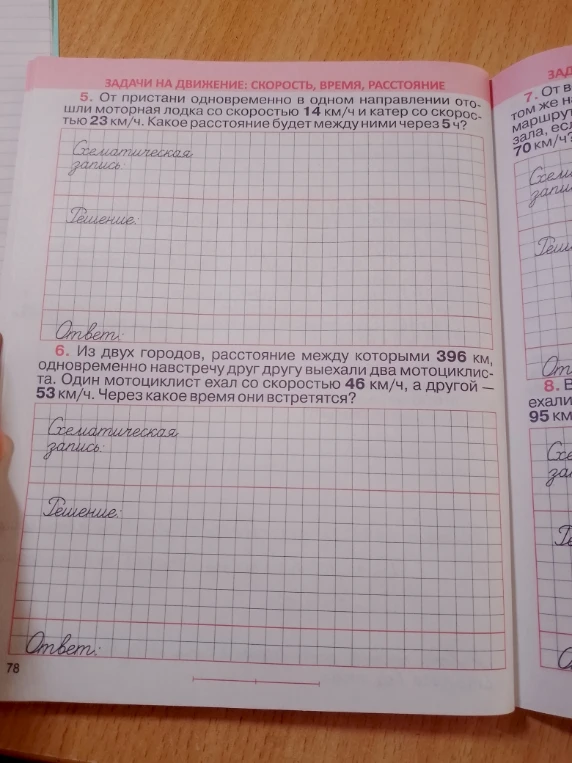 ЗАДАЧИ НА ДВИЖЕНИЕ: СКОРОСТЬ, ВРЕМЯ, РАССТОЯНИЕ
5. От пристани одновременно в одном направлении ото-
шли моторная лодка со скоростью 14 км/ч и катер со скорос-
тью 23 км/ч. Какое расстояние будет между ними через 5 ч?
Схематическая
запись:
Решение:
Ответ:
6. Из двух городов, расстояние между которыми 396 км,
одновременно навстречу друг другу выехали два мотоциклис-
та. Один мотоциклист ехал со скоростью 46 км/ч, а другой —
53 км/ч. Через какое время они встретятся?
Схематическая
запись:
Решение:
Ответ:
78
7. От
том же
70 км/ч
8. В
ехали
95 км